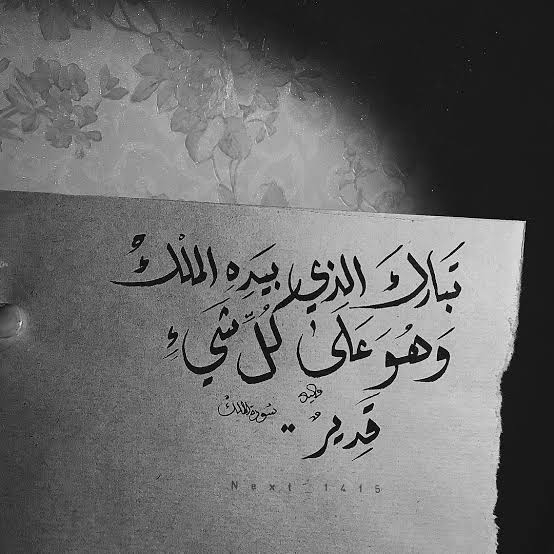 تَبَارَكَ الذي بِيَدِهِ الملْكُ
وَهُوَ عَلَى كُلِّ شَيءٍ
قَدِيرٌ ..
سورة الملك
Next_1415